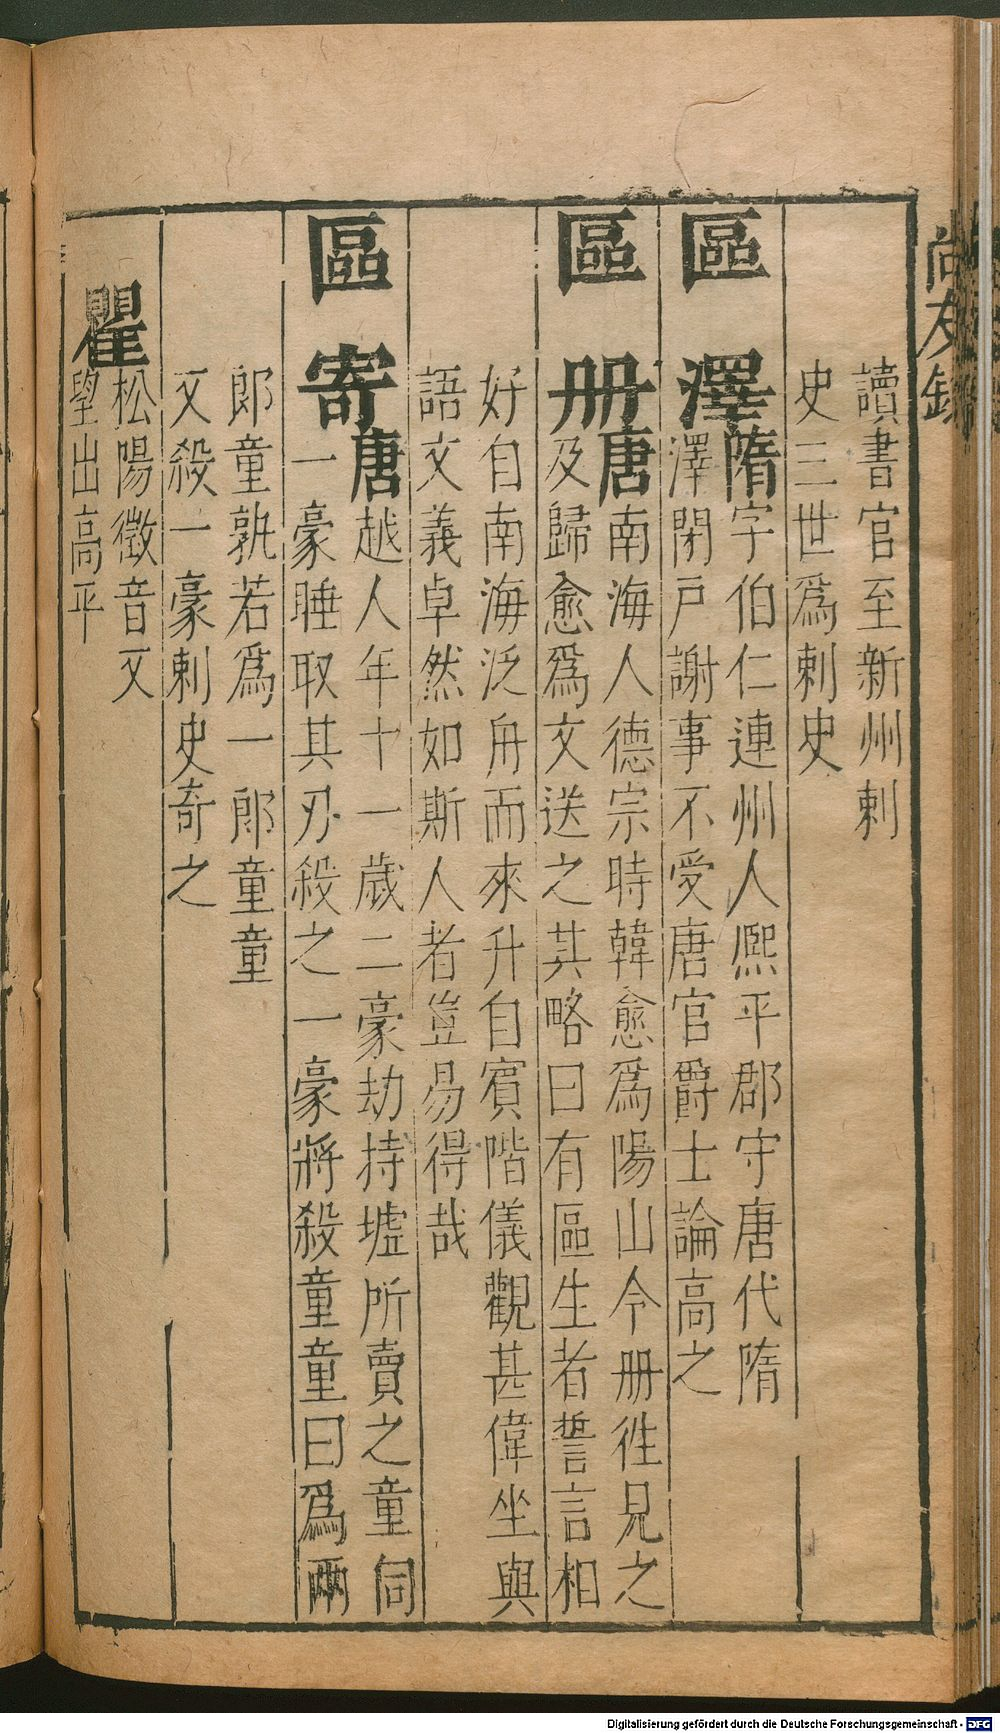 尚友錄
讀書官至新州刺
史三世爲刺史
區澤隋字伯仁連州人熙平郡守唐代隋
澤閉戸謝事不受唐官爵士論高之
區册唐南海人德宗時韓愈爲陽山令册徃見之
及歸愈爲文送之其略曰有區生者誓言相
好自南海泛舟而來升自賓階儀觀甚偉坐與
語文義卓然如斯人者豈易得哉
區寄唐越人年十一歲二豪劫持墟所賣之童伺
一豪睡取其刃殺之一豪將殺童童曰爲兩
郎童孰若爲一郎童童
又殺一豪刺史奇之
瞿松陽徵音又
望出高平
Digitalisierung gefördert durch die Deutsche Forschungsgemeinschaft - DFG